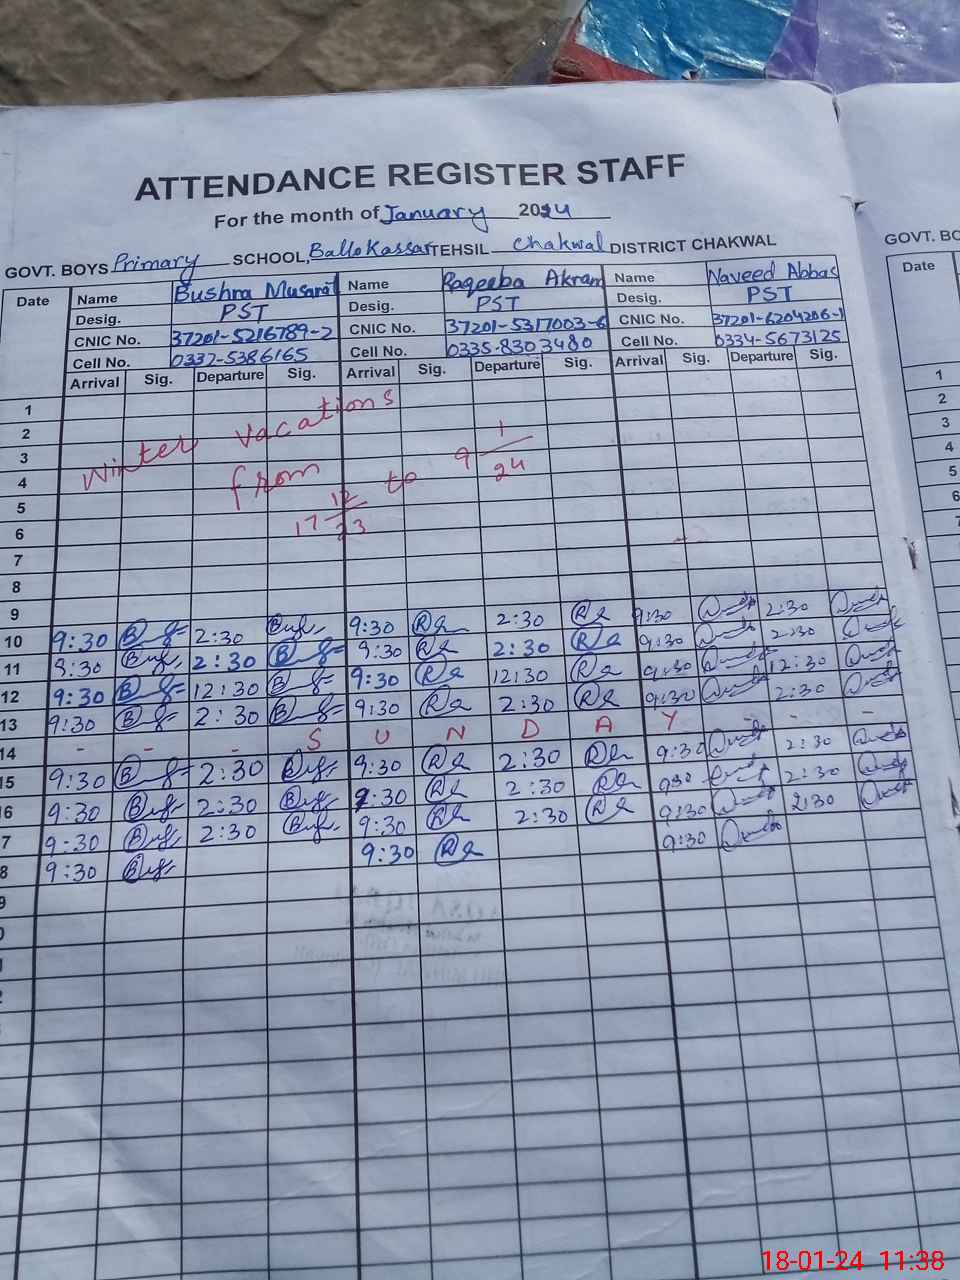 ATTENDANCE REGISTER STAFF
For the month of January 2024
GOVT. BOYS Primary SCHOOL, Ballo Kassar TEHSIL Chakwal DISTRICT CHAKWAL
GOVT. BO
Date Name Bushra Musarat Name Raqeeba Akram Name Naveed Abbas Date
Desig. PST Desig. PST Desig. PST
CNIC No. 37201-5216789-2 CNIC No. 37201-5317003-6 CNIC No. 37201-6204206-1
Cell No. 0332-5386165 Cell No. 0335-8303480 Cell No. 0334-5673125
Arrival Sig. Departure Sig. Arrival Sig. Departure Sig. Arrival Sig. Departure Sig.
1 1
2 2
3 3
4 4
5 5
6 6
7 7
8 8
Winter vacations
from 17 12/23 to 9 1/24
9
10 9:30 2:30 9:30 2:30 9:30 2:30
11 9:30 2:30 9:30 2:30 9:30 2:30
12 9:30 12:30 9:30 12:30 9:30 12:30
13 9:30 2:30 9:30 2:30 9:30 2:30
14 - - - S U N D A Y - - -
15 9:30 2:30 9:30 2:30 9:30 2:30
16 9:30 2:30 9:30 2:30 930 2:30
7 9:30 2:30 9:30 2:30 9:30 2:30
8 9:30 9:30 9:30
9
18-01-24 11:38